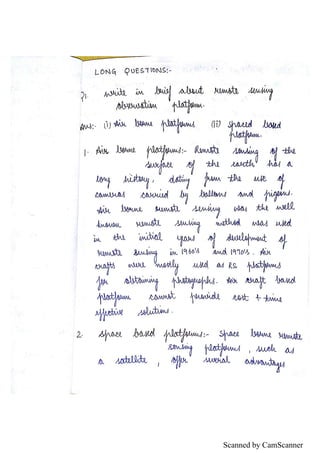 LONG QUESTIONS:-
Q: Write in brief about remote sensing
observation platform.
Ans:- (i) Air borne platforms (ii) Spaced based
platform.
1. Air borne platforms:- Remote sensing of the
surface of the earth has a
long history, dating from the use of
cameras carried by balloons and pigeons.
Air borne remote sensing was the well
known remote sensing method was used
in the initial years of development of
remote sensing in 1960's and 1970's. Air
crafts were mostly used as RS platforms
for obtaining photographs. Air craft based
platform cannot provide cost & time
effective solutions.
2. Space based platforms:- Space borne remote
sensing platforms, such as
a satellite, offer several advantages
Scanned by CamScanner